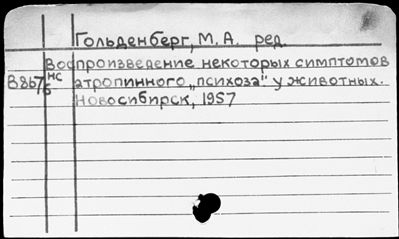 Гольденберг, М. А. ред.
Воспроизведение некоторых симптомов
В867 нс атропинного „психоза" у животных.
б Новосибирск, 1957